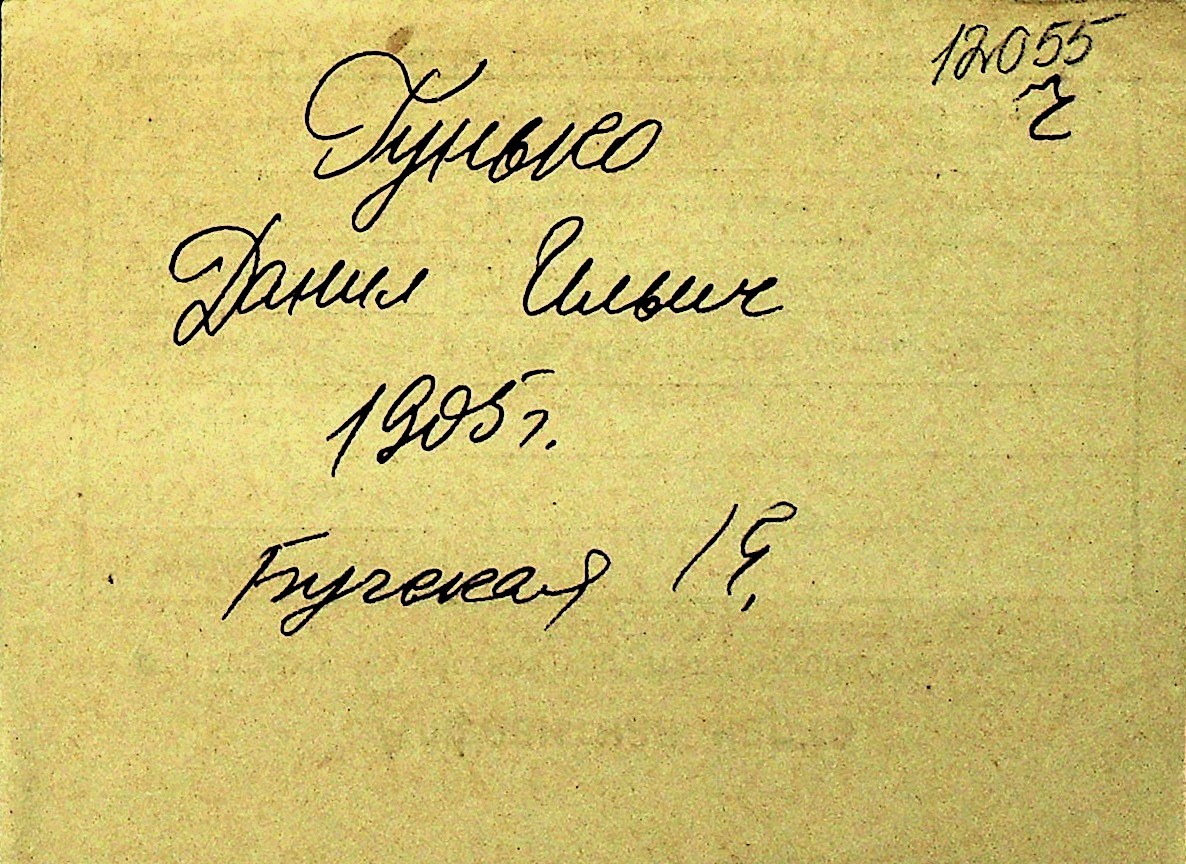 12055
Гунько
Данил Ильич
1905 г.
Бугская